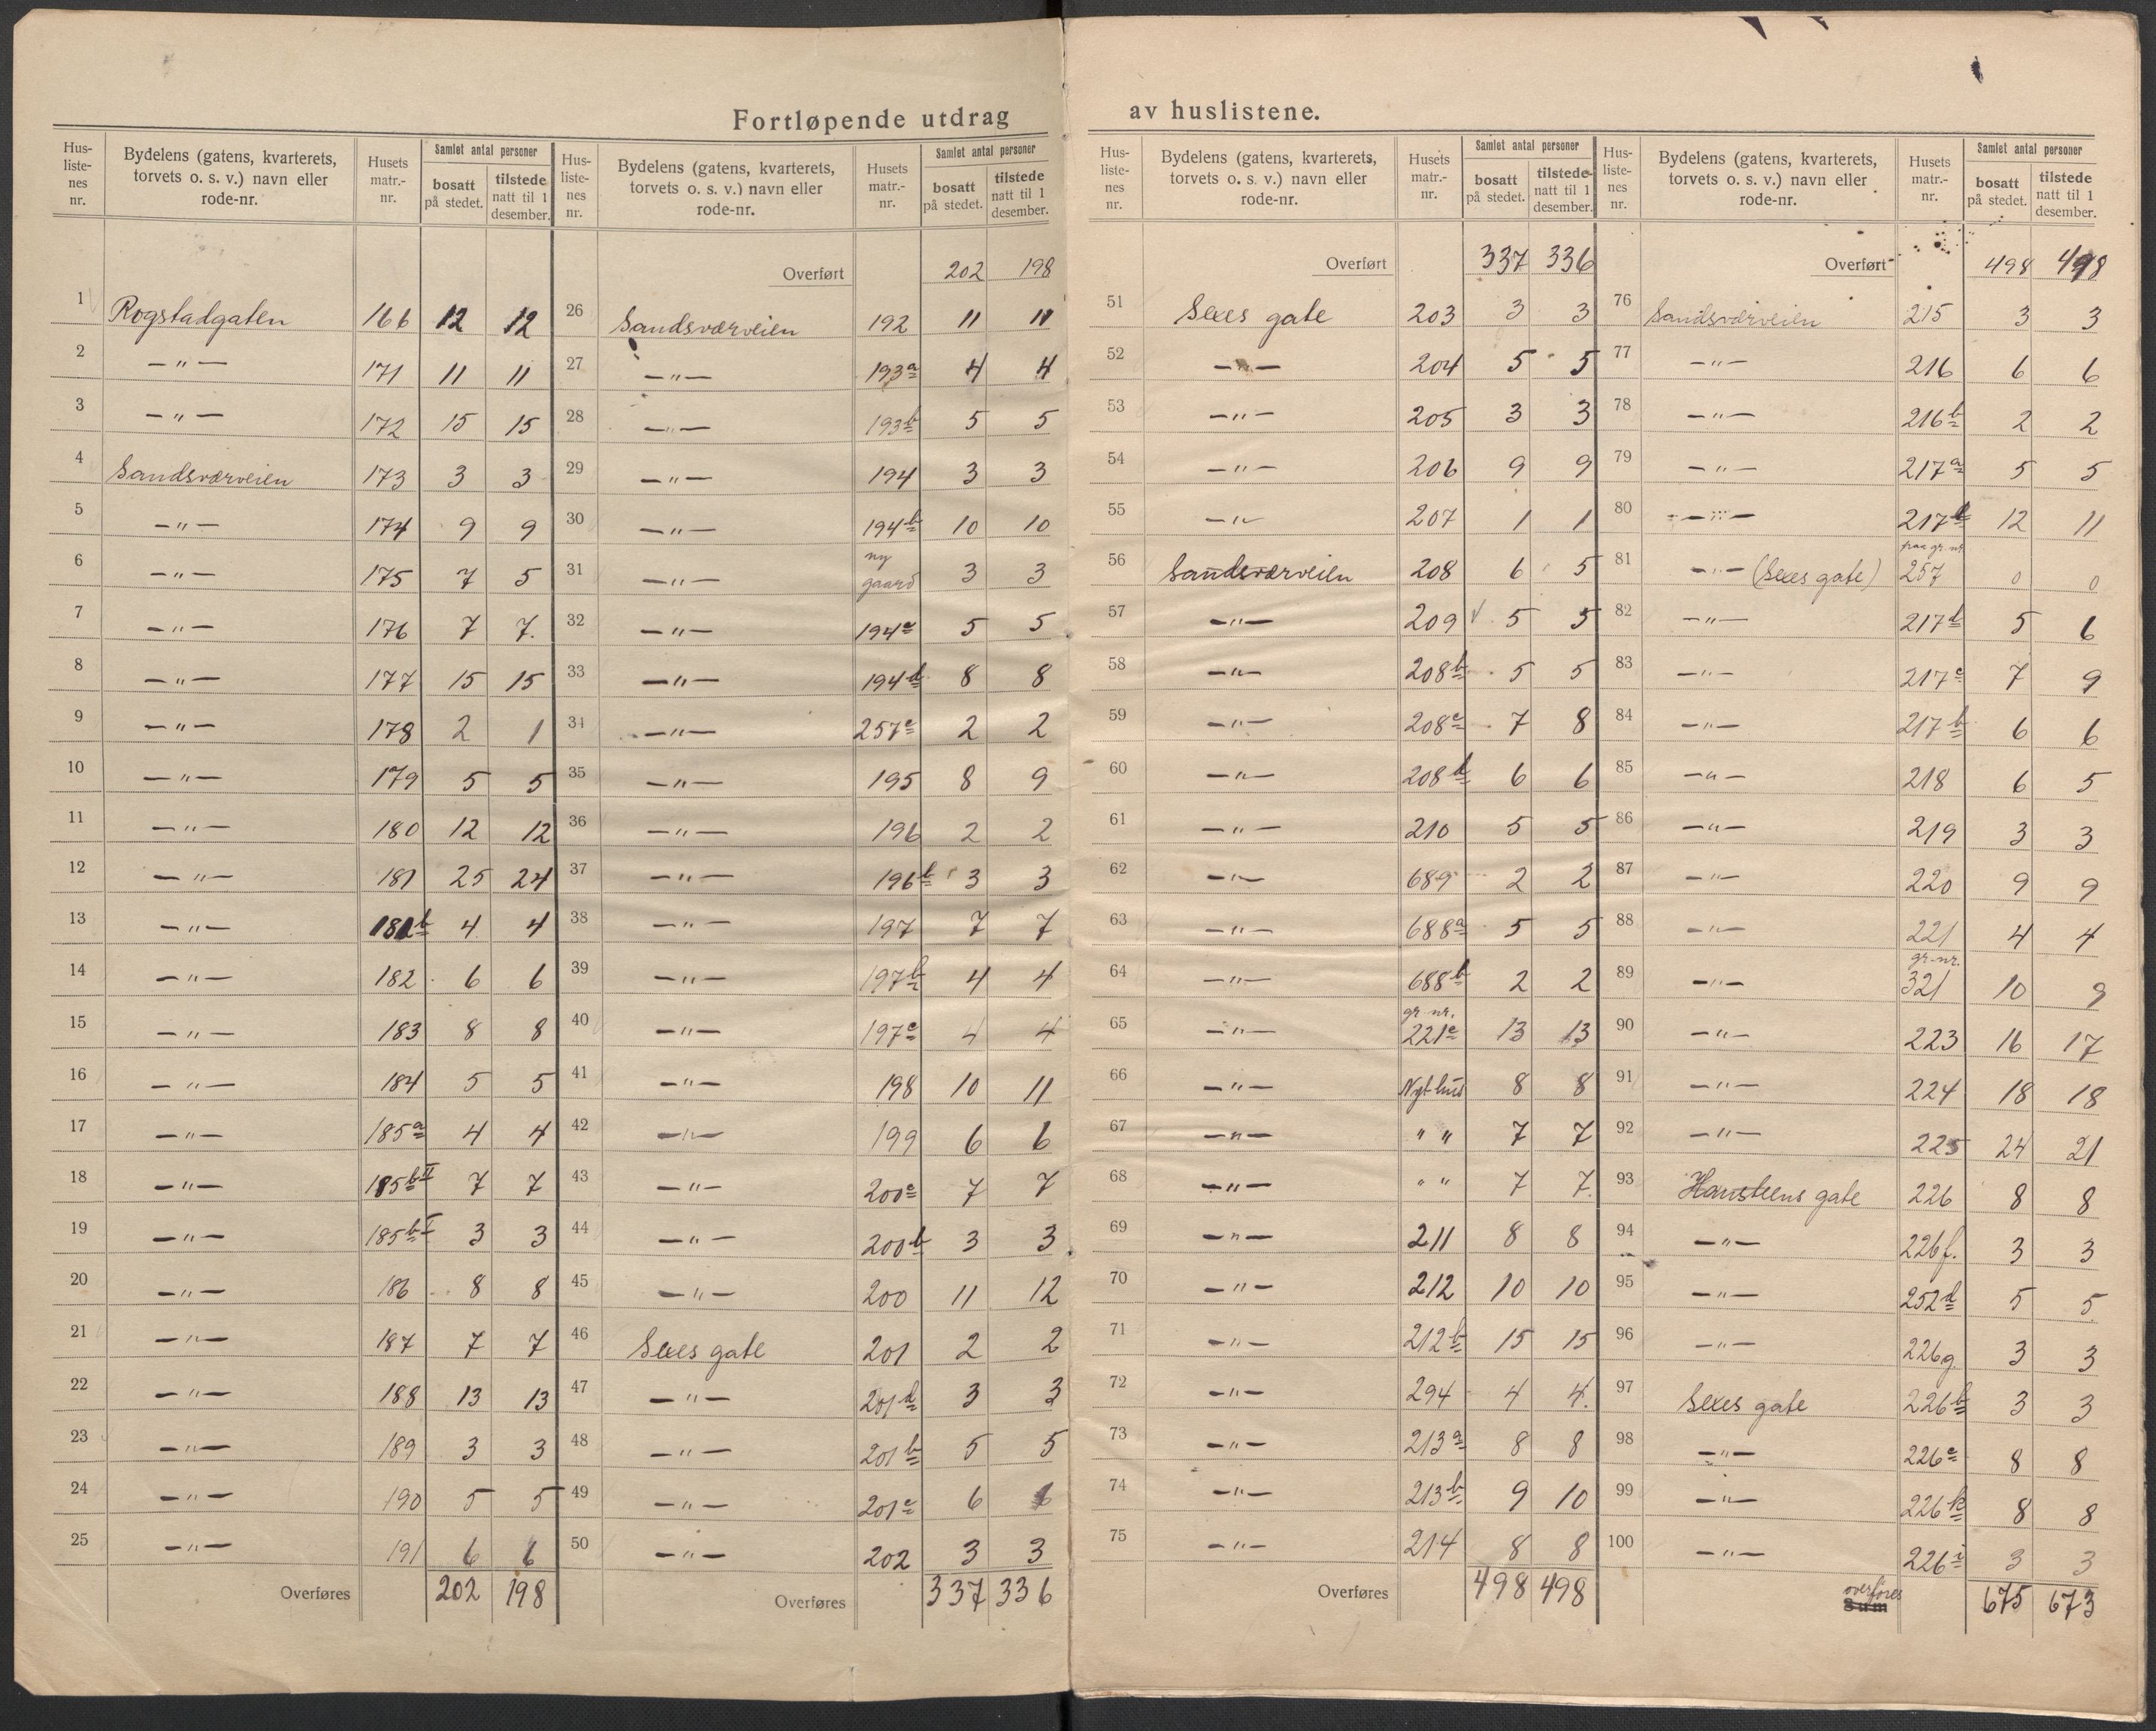 Fortløpende utdrag av huslistene.
Hus-liste-nes nr. | Bydelens (gatens, kvarterets, torvets o. s. v.) navn eller rode-nr. | Husets matr.-nr. | Samlet antal personer | bosatt på stedet. | tilstede natt til 1 desember.
1 Rogstadgaten 166 12 12
2 —"— 171 11 11
3 —"— 172 15 15
4 Sandsværveien 173 3 3
5 —"— 174 9 9
6 —"— 175 7 5
7 —"— 176 7 7.
8 —"— 177 15 15
9 —"— 178 2 1
10 —"— 179 5 5
11 —"— 180 12 12
12 —"— 181 25 24
13 —"— 181b 4 4
14 —"— 182 6 6
15 —"— 183 8 8
16 —"— 184 5 5
17 —"— 185a 4 4
18 —"— 185b II 7 7
19 —"— 185b I 3 3
20 —"— 186 8 8
21 —"— 187 7 7
22 —"— 188 13 13
23 —"— 189 3 3
24 —"— 190 5 5
25 —"— 191 6 6
Overføres 202 198
Hus-liste-nes nr. | Bydelens (gatens, kvarterets, torvets o. s. v.) navn eller rode-nr. | Husets matr.-nr. | Samlet antal personer | bosatt på stedet. | tilstede natt til 1 desember.
Overført 202 198
26 Sandsværveien 192 11 11
27 —"— 193a 4 4
28 —"— 193b 5 5
29 —"— 194 3 3
30 —"— 194b 10 10
31 —"— ny gaard 3 3
32 —"— 194c 5 5
33 —"— 194d 8 8
34 —"— 257c 2 2
35 —"— 195 8 9
36 —"— 196 2 2
37 —"— 196b 3 3
38 —"— 197 7 7
39 —"— 197b 4 4
40 —"— 197c 4 4
41 —"— 198 10 11
42 —"— 199 6 6
43 —"— 200c 7 7
44 —"— 200b 3 3
45 —"— 200 11 12
46 Sexes gate 201 2 2
47 —"— 201d 3 3
48 —"— 201b 5 5
49 —"— 201c 6 6
50 —"— 202 3 3
Overføres 337 336
Hus-liste-nes nr. | Bydelens (gatens, kvarterets, torvets o. s. v.) navn eller rode-nr. | Husets matr.-nr. | Samlet antal personer | bosatt på stedet. | tilstede natt til 1 desember.
Overført 337 336
51 Sexes gate 203 3 3
52 —"— 204 5 5
53 —"— 205 3 3
54 —"— 206 9 9
55 —"— 207 1 1
56 Sandsværveien 208 6 5
57 —"— 209 5 5
58 —"— 208b 5 5
59 —"— 208c 7 8
60 —"— 208d 6 6
61 —"— 210 5 5
62 —"— 689 2 2
63 —"— 688a 5 5
64 —"— 688b 2 2
65 —"— gr. nr. 221c 13 13
66 —"— Nyt hus 8 8
67 —"— " " 7 7
68 —"— " " 7 7.
69 —"— 211 8 8
70 —"— 212 10 10
71 —"— 212b 15 15
72 —"— 294 4 4.
73 —"— 213a 8 8
74 —"— 213b 9 10
75 —"— 214 8 8
Overføres 498 498
Hus-liste-nes nr. | Bydelens (gatens, kvarterets, torvets o. s. v.) navn eller rode-nr. | Husets matr.-nr. | Samlet antal personer | bosatt på stedet. | tilstede natt til 1 desember.
Overført 498 498
76 Sandsværveien 215 3 3
77 —"— 216 6 6
78 —"— 216b 2 2
79 —"— 217a 5 5
80 —"— 217 12 11
81 —"— (Sexes gate) paa gr. nr. 257 0 0
82 —"— 217d 5 6
83 —"— 217c 7 9
84 —"— 217b 6 6
85 —"— 218 6 5
86 —"— 219 3 3
87 —"— 220 9 9
88 —"— 221 4 4
89 —"— gr.-nr. 321 10 9
90 —"— 223 16 17
91 —"— 224 18 18
92 —"— 225 24 21
93 Hansteens gate 226 8 8
94 —"— 226f. 3 3
95 —"— 252d 5 5
96 —"— 226g 3 3
97 Sexes gate 226b 3 3
98 —"— 226c 8 8
99 —"— 226k 8 8
100 —"— 226i 3 3
overføres
Sum 675 673